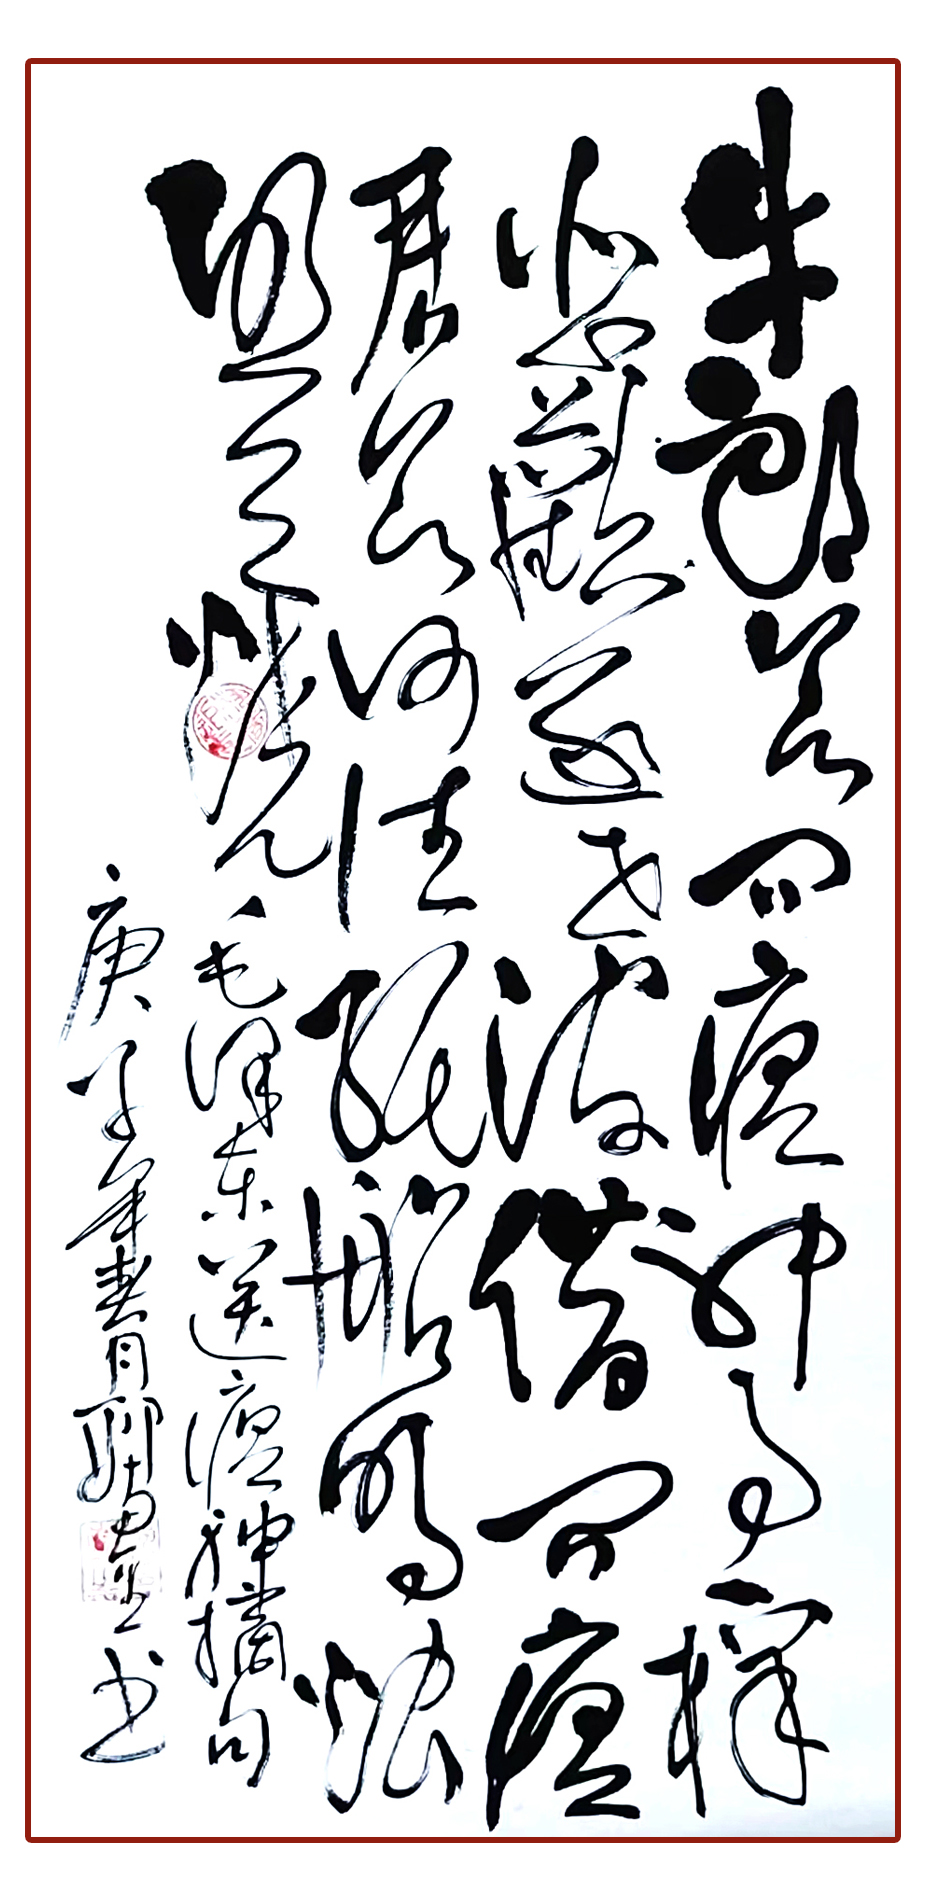 牛郎欲问瘟神事一样
悲歡逐逝波借问瘟
君欲何往纸船明烛
照天烧 毛泽东送瘟神摘句
庚子年春月 书